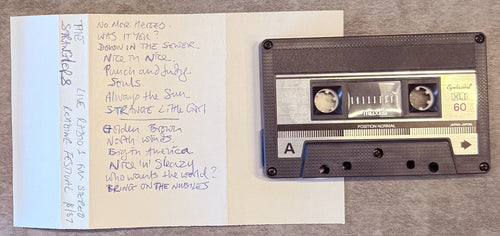 THE
STRANGLERS
LIVE RADIO 1 FM STEREO
READING FESTIVAL 8/87
NO MORE HEROES.
WAS IT YOU?
DOWN IN THE SEWER.
NICE IN NICE.
Punch and Judy.
Souls
Always the Sun
STRANGE LITTLE GIRL
Golden Brown
North Winds.
Big in America
Nice 'n' Sleazy
Who wants the world?
BRING ON THE NUBILES
XLI
60
maxell
POSITION NORMAL
A